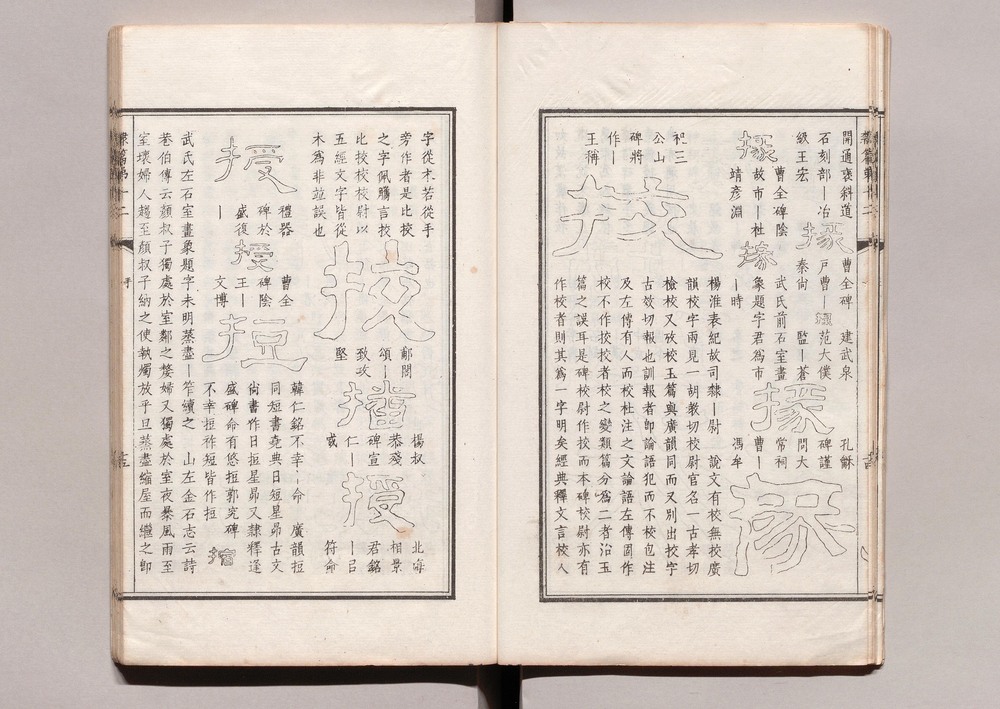 開通褒斜道
石刻部｜冶
級王宏
掾
曹全碑
戶曹｜
秦尙
掾
建武泉
范大僕
監｜蒼
掾
孔龢
碑謹
問大
常祠
曹｜
馮牟
掾
掾
曹全碑陰
故市｜杜
靖彥淵
掾
武氏前石室畫
象題字君爲市
｜時
校
楊淮表紀故司隸｜尉　說文有校無挍廣
韻校字兩見一胡教切校尉官名一古孝切
檢校又攷校玉篇與廣韻同而又別出挍字
古效切報也訓報者卽論語犯而不校包注
及左傳有人而校杜注之文論語左傳固作
校不作挍挍者校之變類篇分爲二者沿玉
篇之誤耳是碑校尉作挍而本碑校尉亦有
作校者則其爲一字明矣經典釋文言校人
祀三
公山
碑將
作｜
王稱
字從木若從手
旁作者是比挍
之字佩觿言校
比挍挍校尉以
五經文字皆從
木爲非並誤也
挍
郙閣
頌｜
致攻
堅
播
楊叔
恭殘
碑宣
仁｜
威
授
北海
相景
君銘
｜吕
符命
授
禮器
碑於
盛復
｜
授
曹全
碑陰
王｜
文博
挋
韓仁銘不幸｜命　廣韻挋
同短書堯典日短星昴古文
尙書作日挋星昴又隸釋逢
盛碑命有悠挋郭究碑
不幸挋祚短皆作挋
搚
武氏左石室畫象題字未明蒸盡｜笮續之　山左金石志云詩
巷伯傳云顏叔子獨處於室鄰之嫠婦又獨處於室夜暴風雨至
室壞婦人趨至顏叔子納之使執燭放乎旦蒸盡縮屋而繼之卽